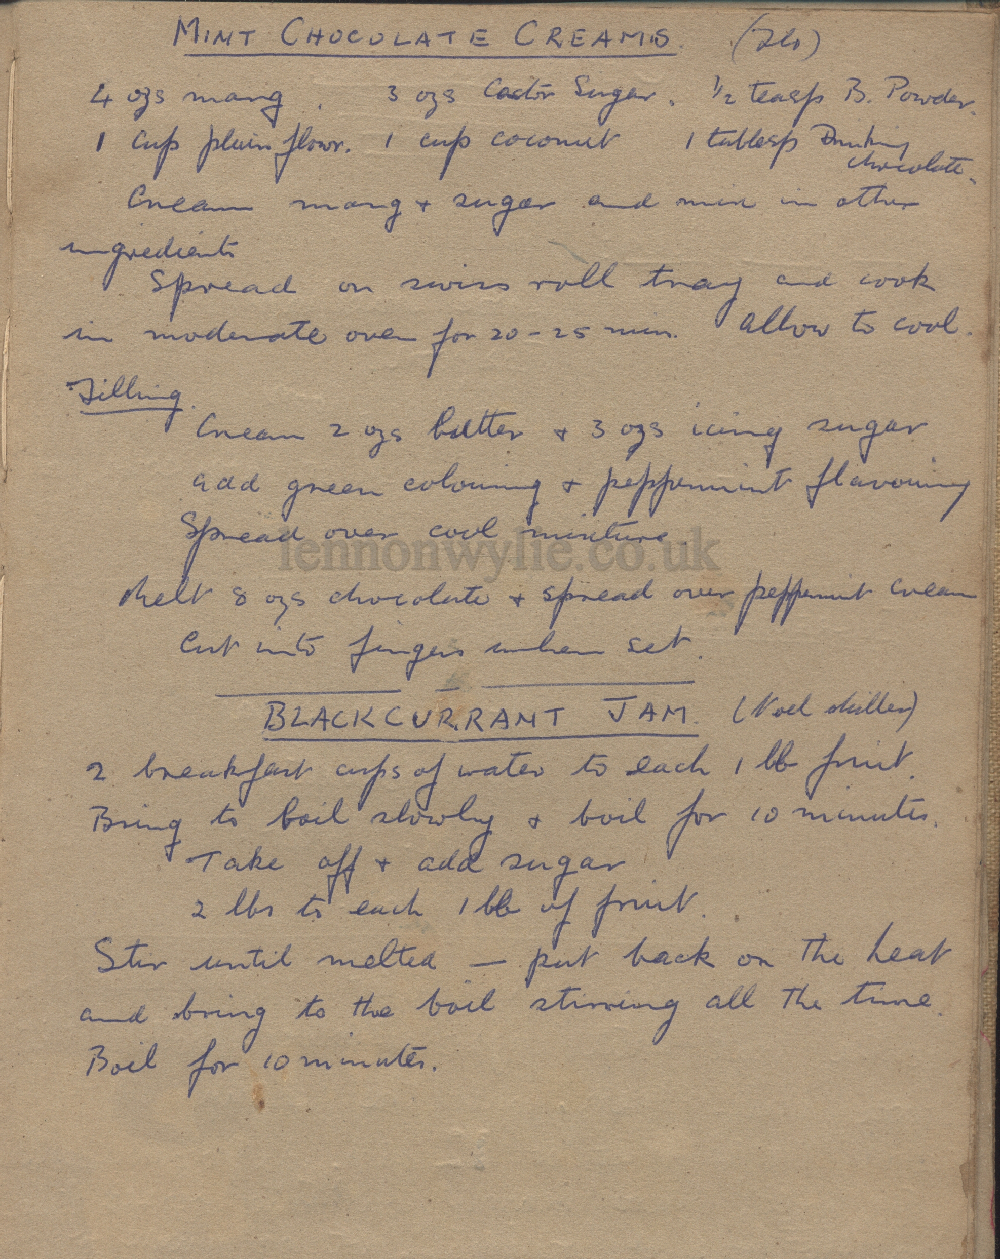 MINT CHOCOLATE CREAMS. (Flo)
4 ozs marg. 3 ozs Castor Sugar. ½ teasp B. Powder.
1 cup plain flour. 1 cup coconut 1 tablesp Drinking
chocolate.
Cream marg + sugar and mix in other
ingredients
Spread on swiss roll tray and cook
in moderate oven for 20-25 min. Allow to cool.
Filling.
Cream 2 ozs butter + 3 ozs icing sugar
add green colouring + peppermint flavouring
Spread over cool mixture.
lennonwylie.co.uk
Melt 8 ozs chocolate + spread over peppermint cream
Cut into fingers when set.
BLACKCURRANT JAM. (Noel)
2 breakfast cups of water to each 1 lb fruit.
Bring to boil slowly + boil for 10 minutes.
Take off + add sugar
2 lbs to each 1 lb of fruit.
Stir until melted — put back on the heat
and bring to the boil stirring all the time.
Boil for 10 minutes.